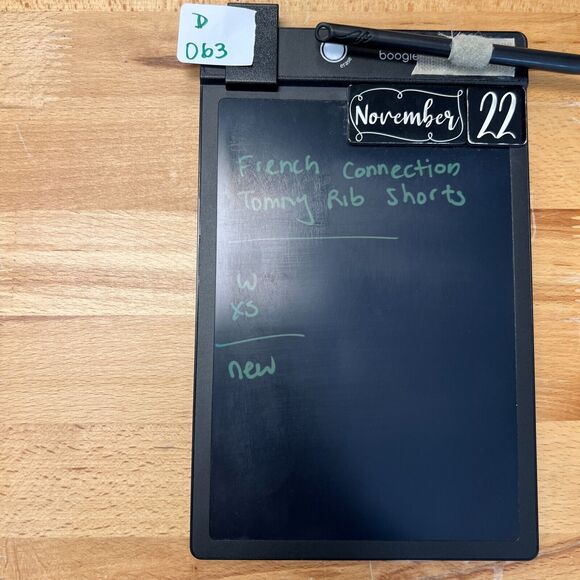 D
063
erase
boogie
November 22
French Connection
Tommy Rib Shorts
W
XS
new